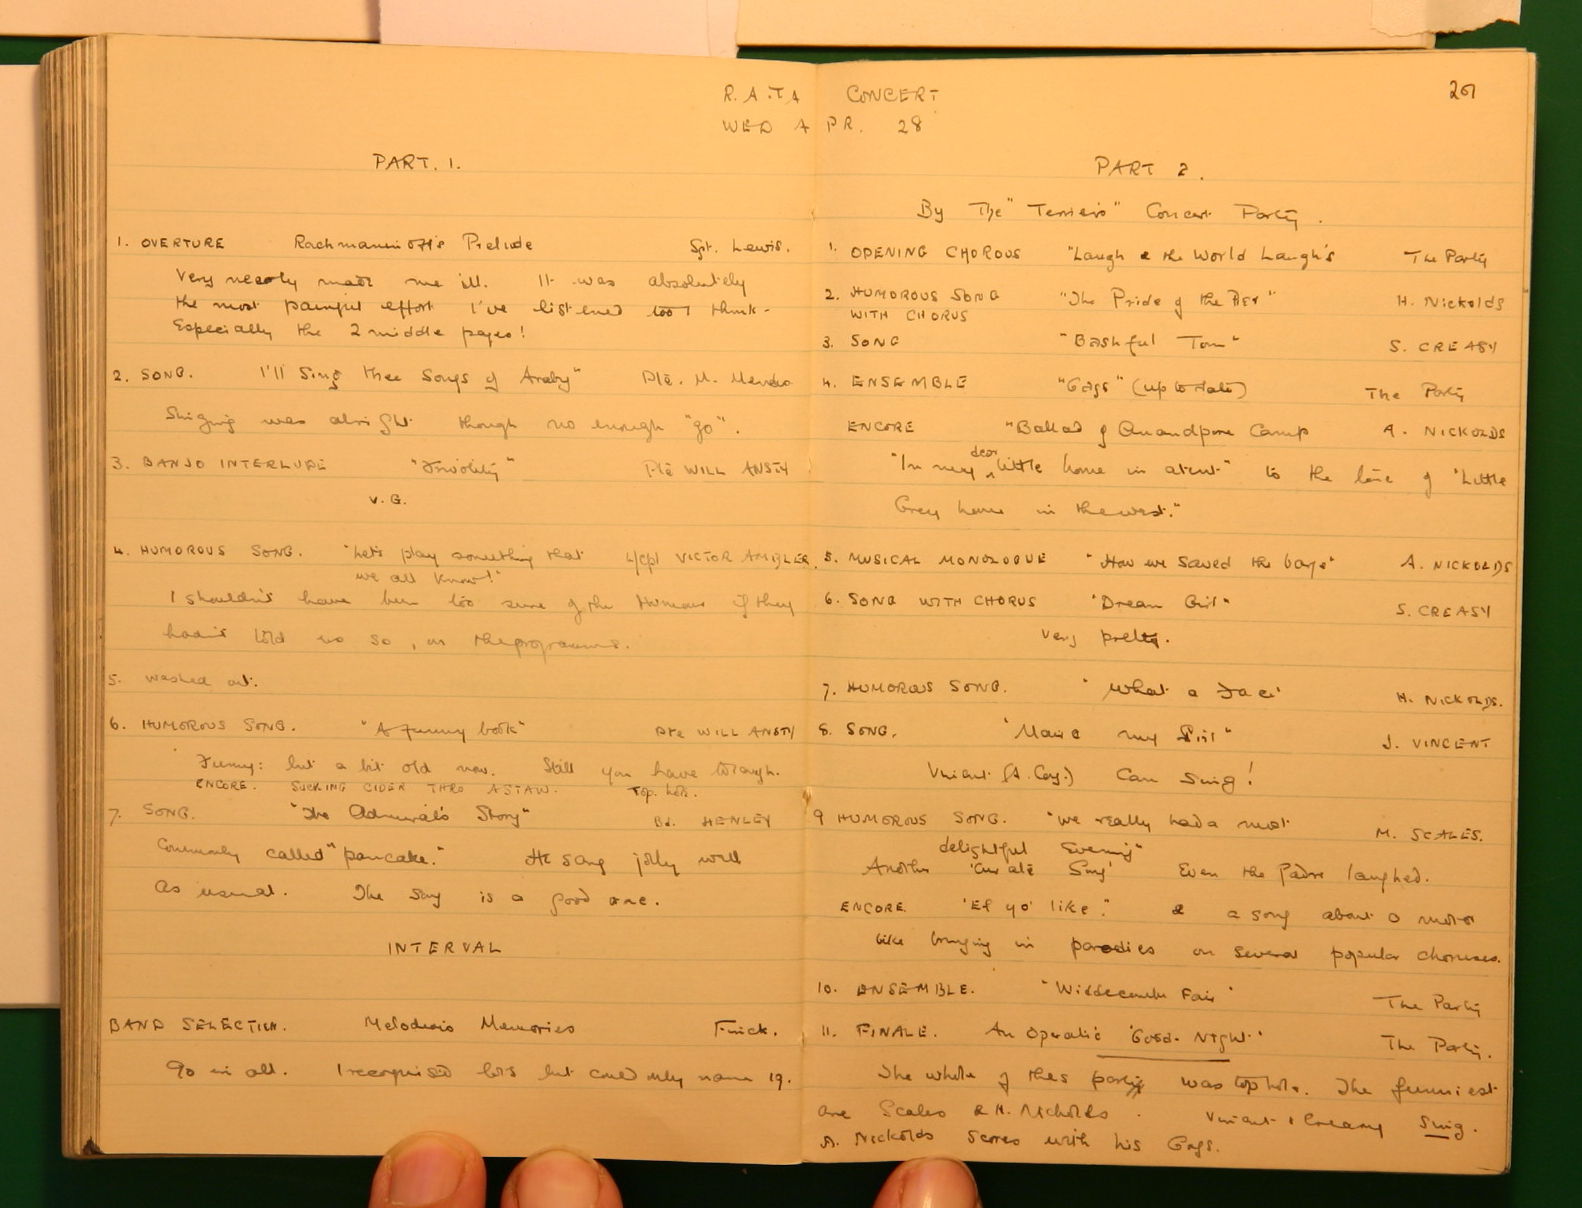 R.A.T.A CONCERT
201
WED APR. 28
PART. 1.
1. OVERTURE Rachmaninoff's Prelude Sgt. Lewis.
Very nearly made me ill. It was absolutely
the most painful effort I've listened too I think -
Especially the 2 middle pages!
2. SONG. I'll Sing thee Songs of Araby" Pte. M.
Singing was alright though no enough "go".
3. BANJO INTERLUDE "Frivolity" Pte WILL ANSTY
V.G.
4. HUMOROUS SONG. "Let's play something that L/Cpl VICTOR AMBLER.
we all know!"
I shouldn't have been too sure of the Humour if they
hadn't told us so, on the programme.
5. Washed out.
6. HUMOROUS SONG. "A funny book" Pte WILL ANSTY
Funny: but a bit old now. Still you have to laugh.
ENCORE. SUCKING CIDER THRO A STAW. Top. hole.
7. SONG. "The Admiral's Story" Bd. HENLEY
Commonly called "pancake." He sang jolly well
as usual. The song is a good one.
INTERVAL
BAND SELECTION. Melodious Memories Finck.
90 in all. I recognised lots but could only name 19.
PART 2.
By The "Terriers" Concert Party.
1. OPENING CHOROUS "Laugh & the World Laugh's The Party
2. HUMOROUS SONG "The Pride of the Pier" H. Nickolds
WITH CHORUS
3. SONG "Bashful Tom" S. CREASY
4. ENSEMBLE "Gags" (up to date) The Party
ENCORE "Ballad of Quandpore Camp A. NICKOLDS
"In my dear little home in a tent" to the tune of 'Little
Grey home in the west."
5. MUSICAL MONOLOGUE "How we saved the barge" A. NICKOLDS
6. SONG WITH CHORUS "Dream Girl" S. CREASY
Very pretty.
7. HUMOROUS SONG. "What a Face" H. NICKOLDS.
8. SONG. "Marie my Girl" J. VINCENT
Vincent (A. Coy.) Can Sing!
9 HUMOROUS SONG. "We really had a most M. SCALES.
delightful Evening"
Another 'Curate Song' Even the Padre laughed.
ENCORE. 'Ef yo' like". & a song about a motor
bike bringing in parodies on several popular choruses.
10. ENSEMBLE. "Widdecombe Fair" The Party
11. FINALE. An Operatic 'Good-Night.' The Party.
The whole of this party was top hole. The funniest
are Scales & H. Nicholds. Vincent & Creasy Sing.
A. Nickolds scores with his Gags.